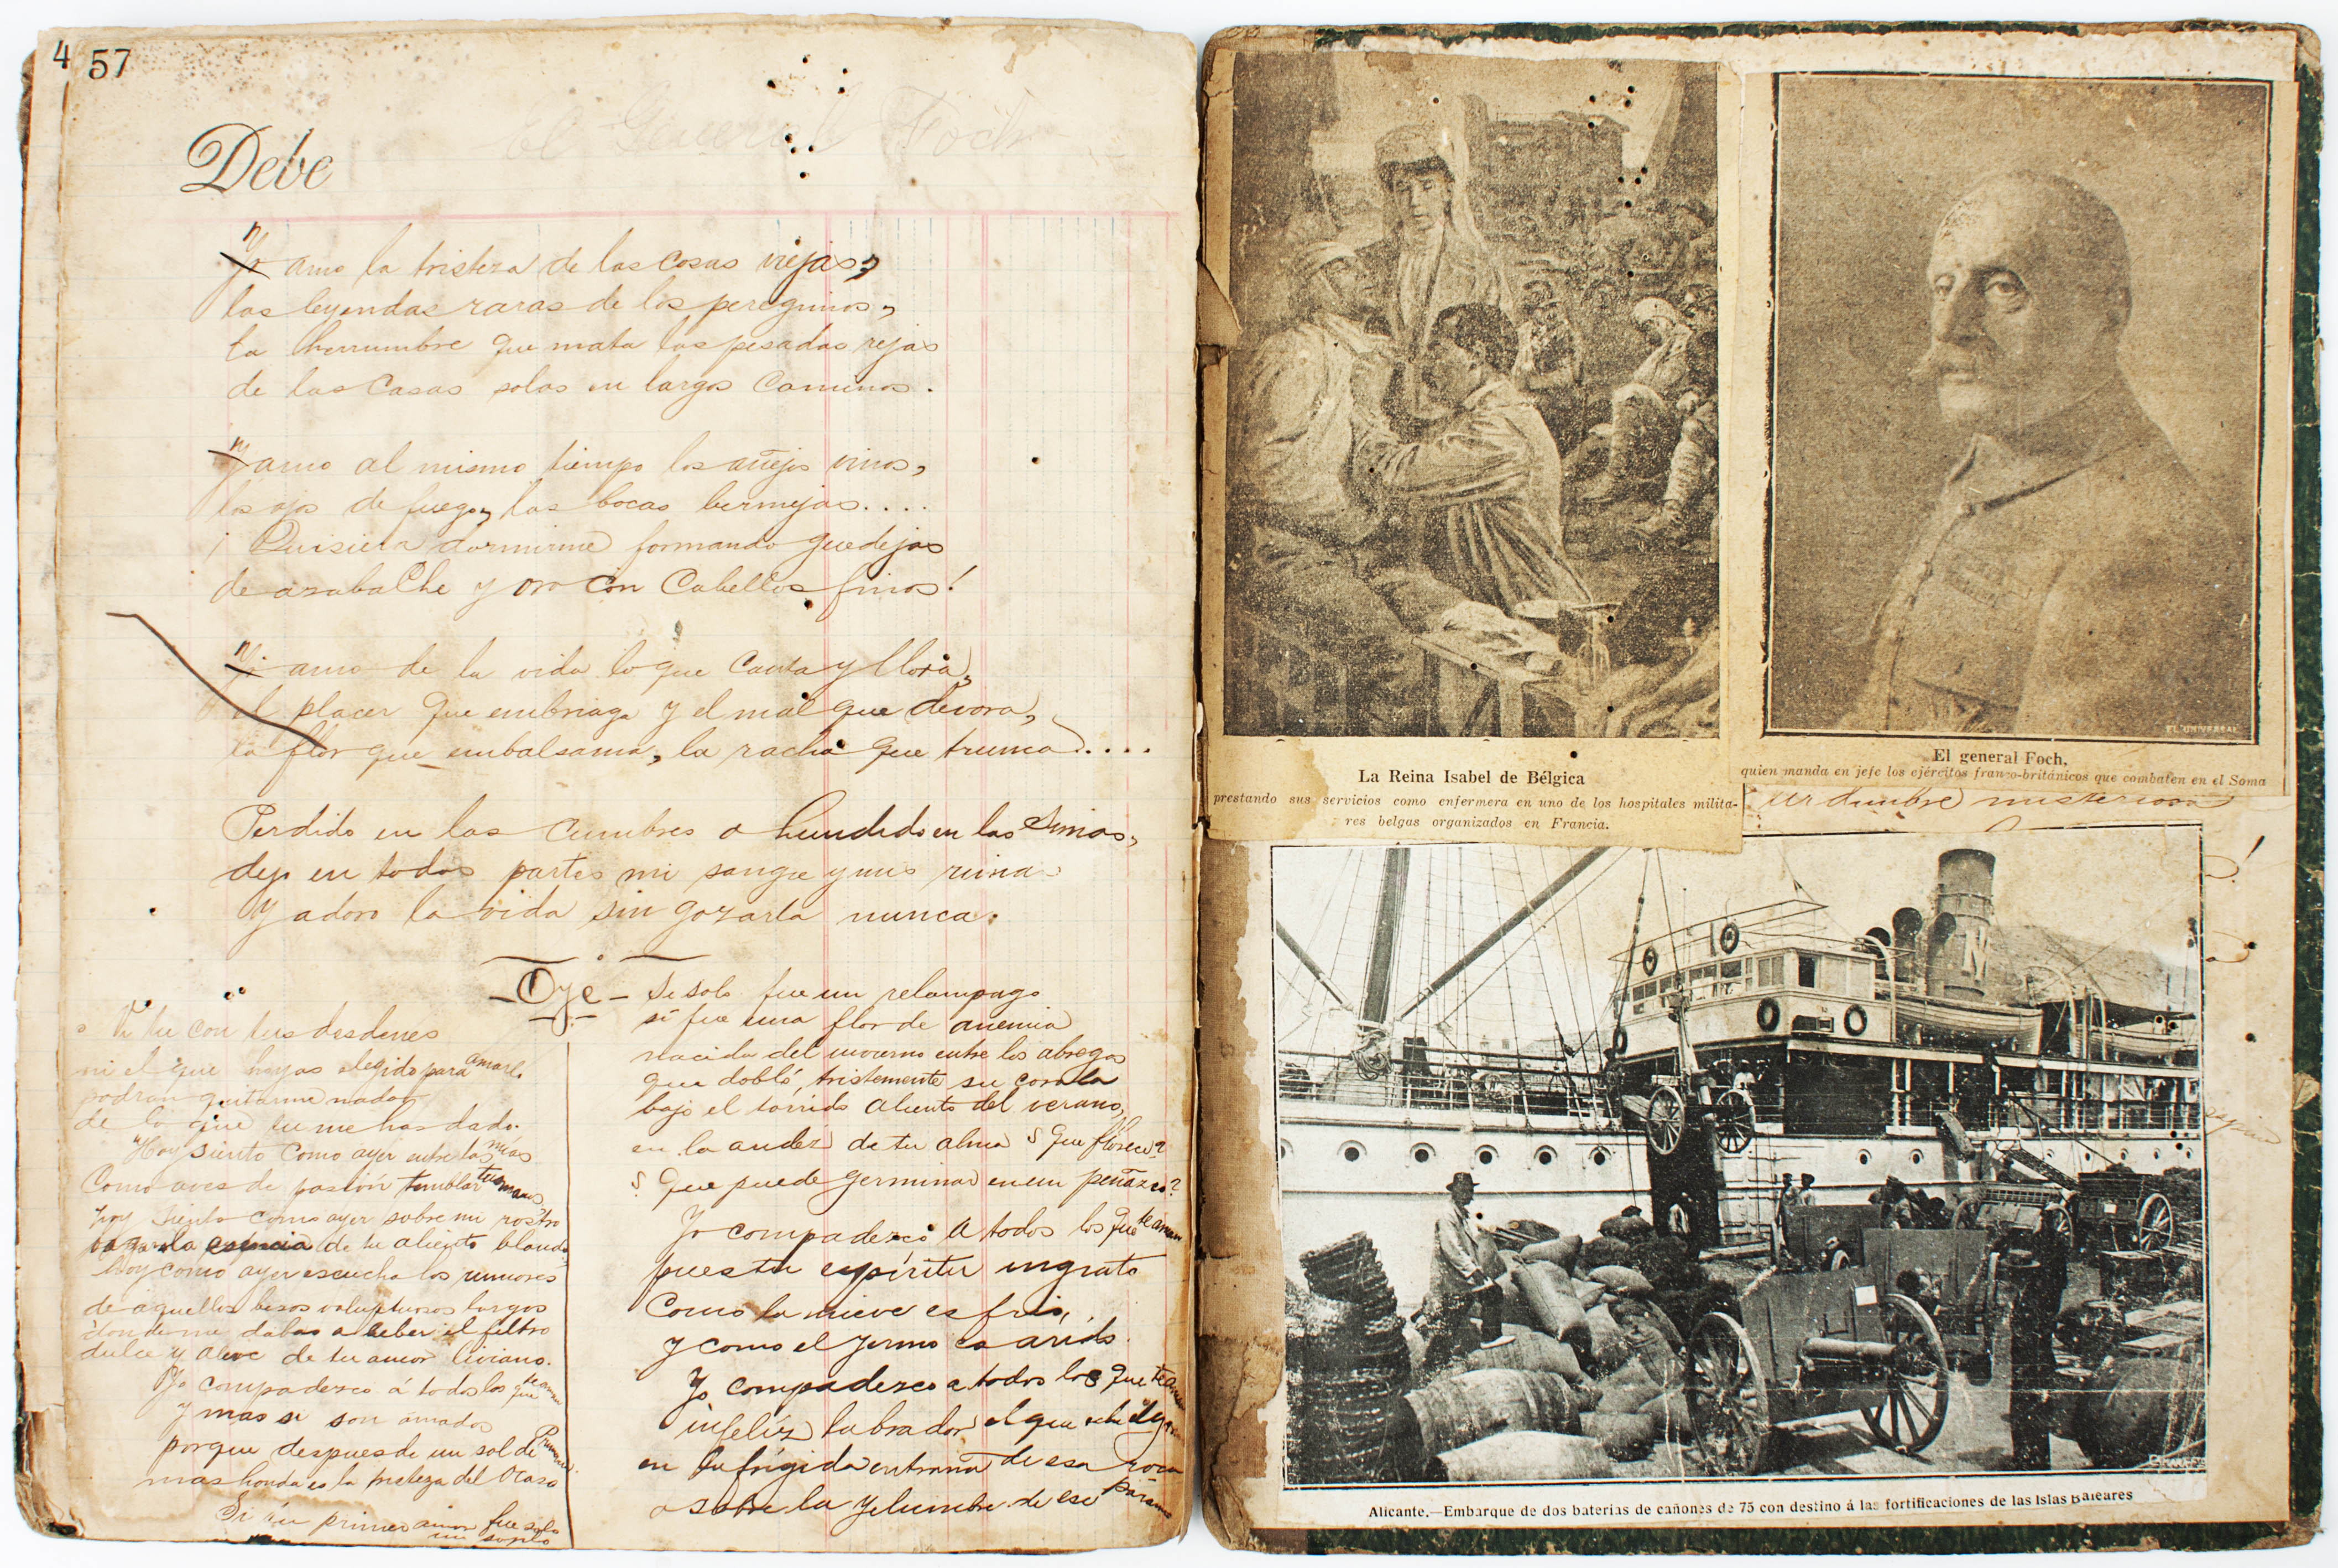 4 57
Debe
El General Foch
Yo amo la tristeza de las cosas viejas,
las leyendas raras de los peregrinos,
la herrumbre que mata las pesadas rejas
de las Casas solas en largos Caminos.
Y amo al mismo tiempo los añejos vinos,
los ojos de fuego, las bocas bermejas....
¡Quisiera dormirme formando guedejas
de azabache y oro con Cabellos finos!
Yo amo de la vida lo que Canta y llora,
el placer que embriaga y el mal que devora,
la flor que embalsama, la racha que trunca....
Perdido en las Cumbres o hundido en las Simas,
dejo en todas partes mi sangre y mis rimas
Y adoro la vida sin gozarla nunca.
- Oye -
Ni tu con tus desdenes
ni el que hayas elegido para amarlo
podran quitarme nada
de lo que tu me has dado.
Hoy siento Como ayer entre las mias
Como aves de pasión temblar tus manos
hoy siento como ayer sobre mi rostro
vagar la esencia de tu aliento blando
Hoy como ayer escucho los rumores
de aquellos besos voluptuosos largos
donde me dabas a beber el filtro
dulce y aleve de tu amor liviano.
Yo compadezco á todos los que te aman
y mas si son amados
porque despues de un sol de Primavera
mas honda es la tristeza del Ocaso
Si tu primer amor fue solo
un soplo
Si solo fue un relampago
si fue una flor de anemia
nacida del invierno entre los abregos
que dobló tristemente su corola
bajo el tórrido aliento del verano,
en la aridez de tu alma ¿Que florece?
¿Que puede germinar en un peñazco?
Yo compadezco a todos los que te aman
pues tu espíritu ingrato
Como la nieve es frio,
y como el yermo es arido.
Yo compadezco a todos los que te aman
infeliz labrador el que eche el grano
en la frigida entraña de esa roca
o sobre la yelumbre de ese paramo
La Reina Isabel de Bélgica
prestando sus servicios como enfermera en uno de los hospitales milita-
res belgas organizados en Francia.
EL UNIVERSAL
El general Foch,
quien manda en jefe los ejércitos franco-británicos que combaten en el Soma
misteriosa
Alicante.—Embarque de dos baterias de cañones de 75 con destino á las fortificaciones de las Islas Baleares